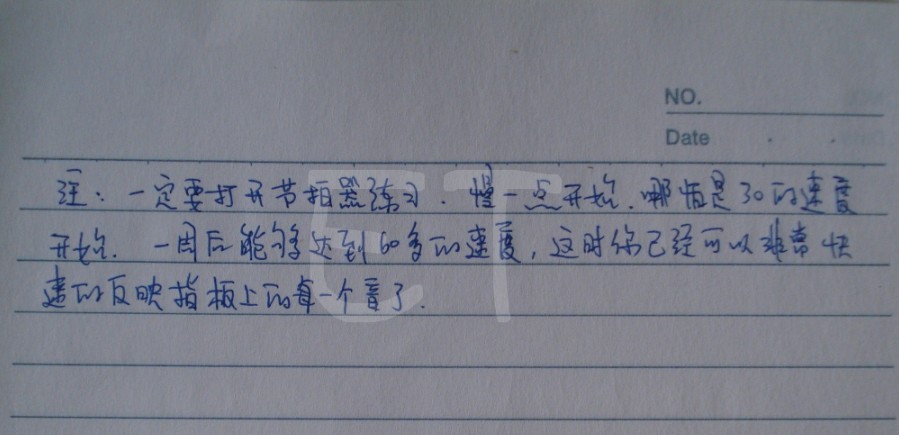 NO.
Date
注：一定要打开节拍器练习．慢一点开始．哪怕是30的速度
开始．一周后能够达到60多的速度，这时你已经可以非常快
速的反映指板上的每一个音了．
CT